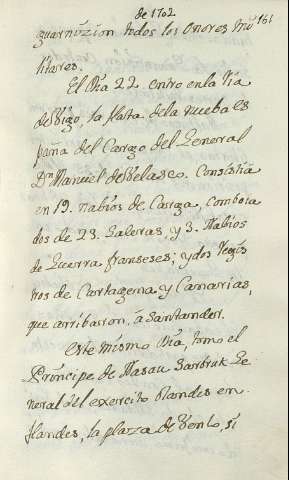 de 1702
161
guarnizion todos los onores mi
litares.
El Dia 22 entro en la Ria
de Vigo, la flota de la nueba Es
paña del Cargo del General
Dn Manuel de Velasco. Consistia
en 19. nabios de Carga, comboia
dos de 23. Galeras, y 3. Nabios
de Guerra franseses; y dos Regis
tros de Cartagena y Canarias,
que arribaron, â Santander.
Este mismo Dia, tomo el
Prinsipe de Nasau Sarbruk Ge
neral del exercito olandes en
flandes, la plaza de Venlo, si